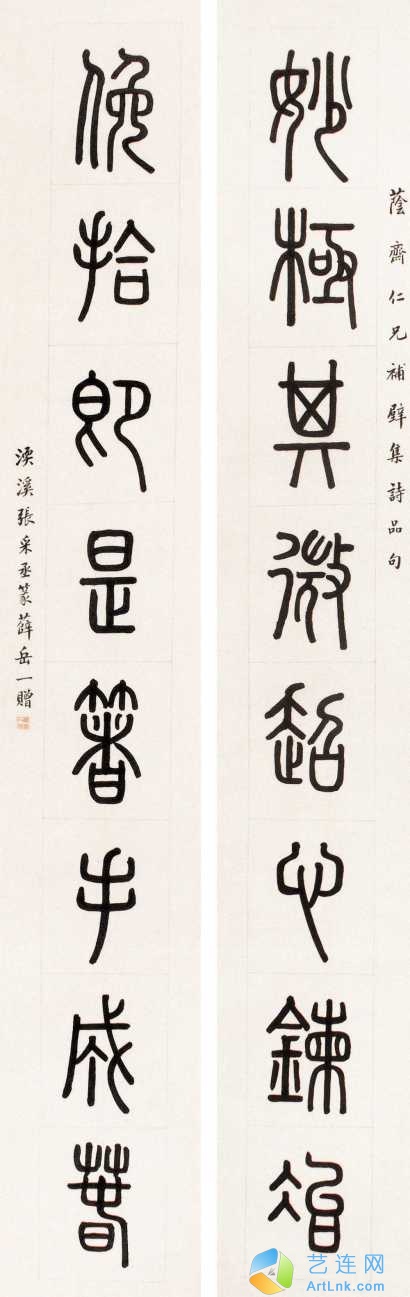 蔭齋仁兄補壁集詩品句
妙極其微超心鍊冶
俛拾即是箸手成春
溪張采丞篆薛岳一贈
艺连网
ArtLnk.com